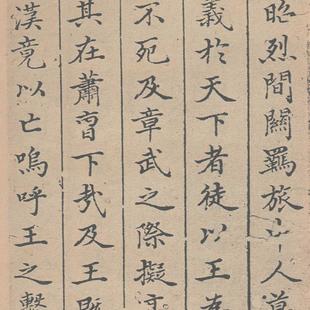 昭烈間關羈旅人
義於天下者徒以王
不死及章武之際擬
其在蕭曹下哉及王既
漢竟以亡嗚呼王之繫